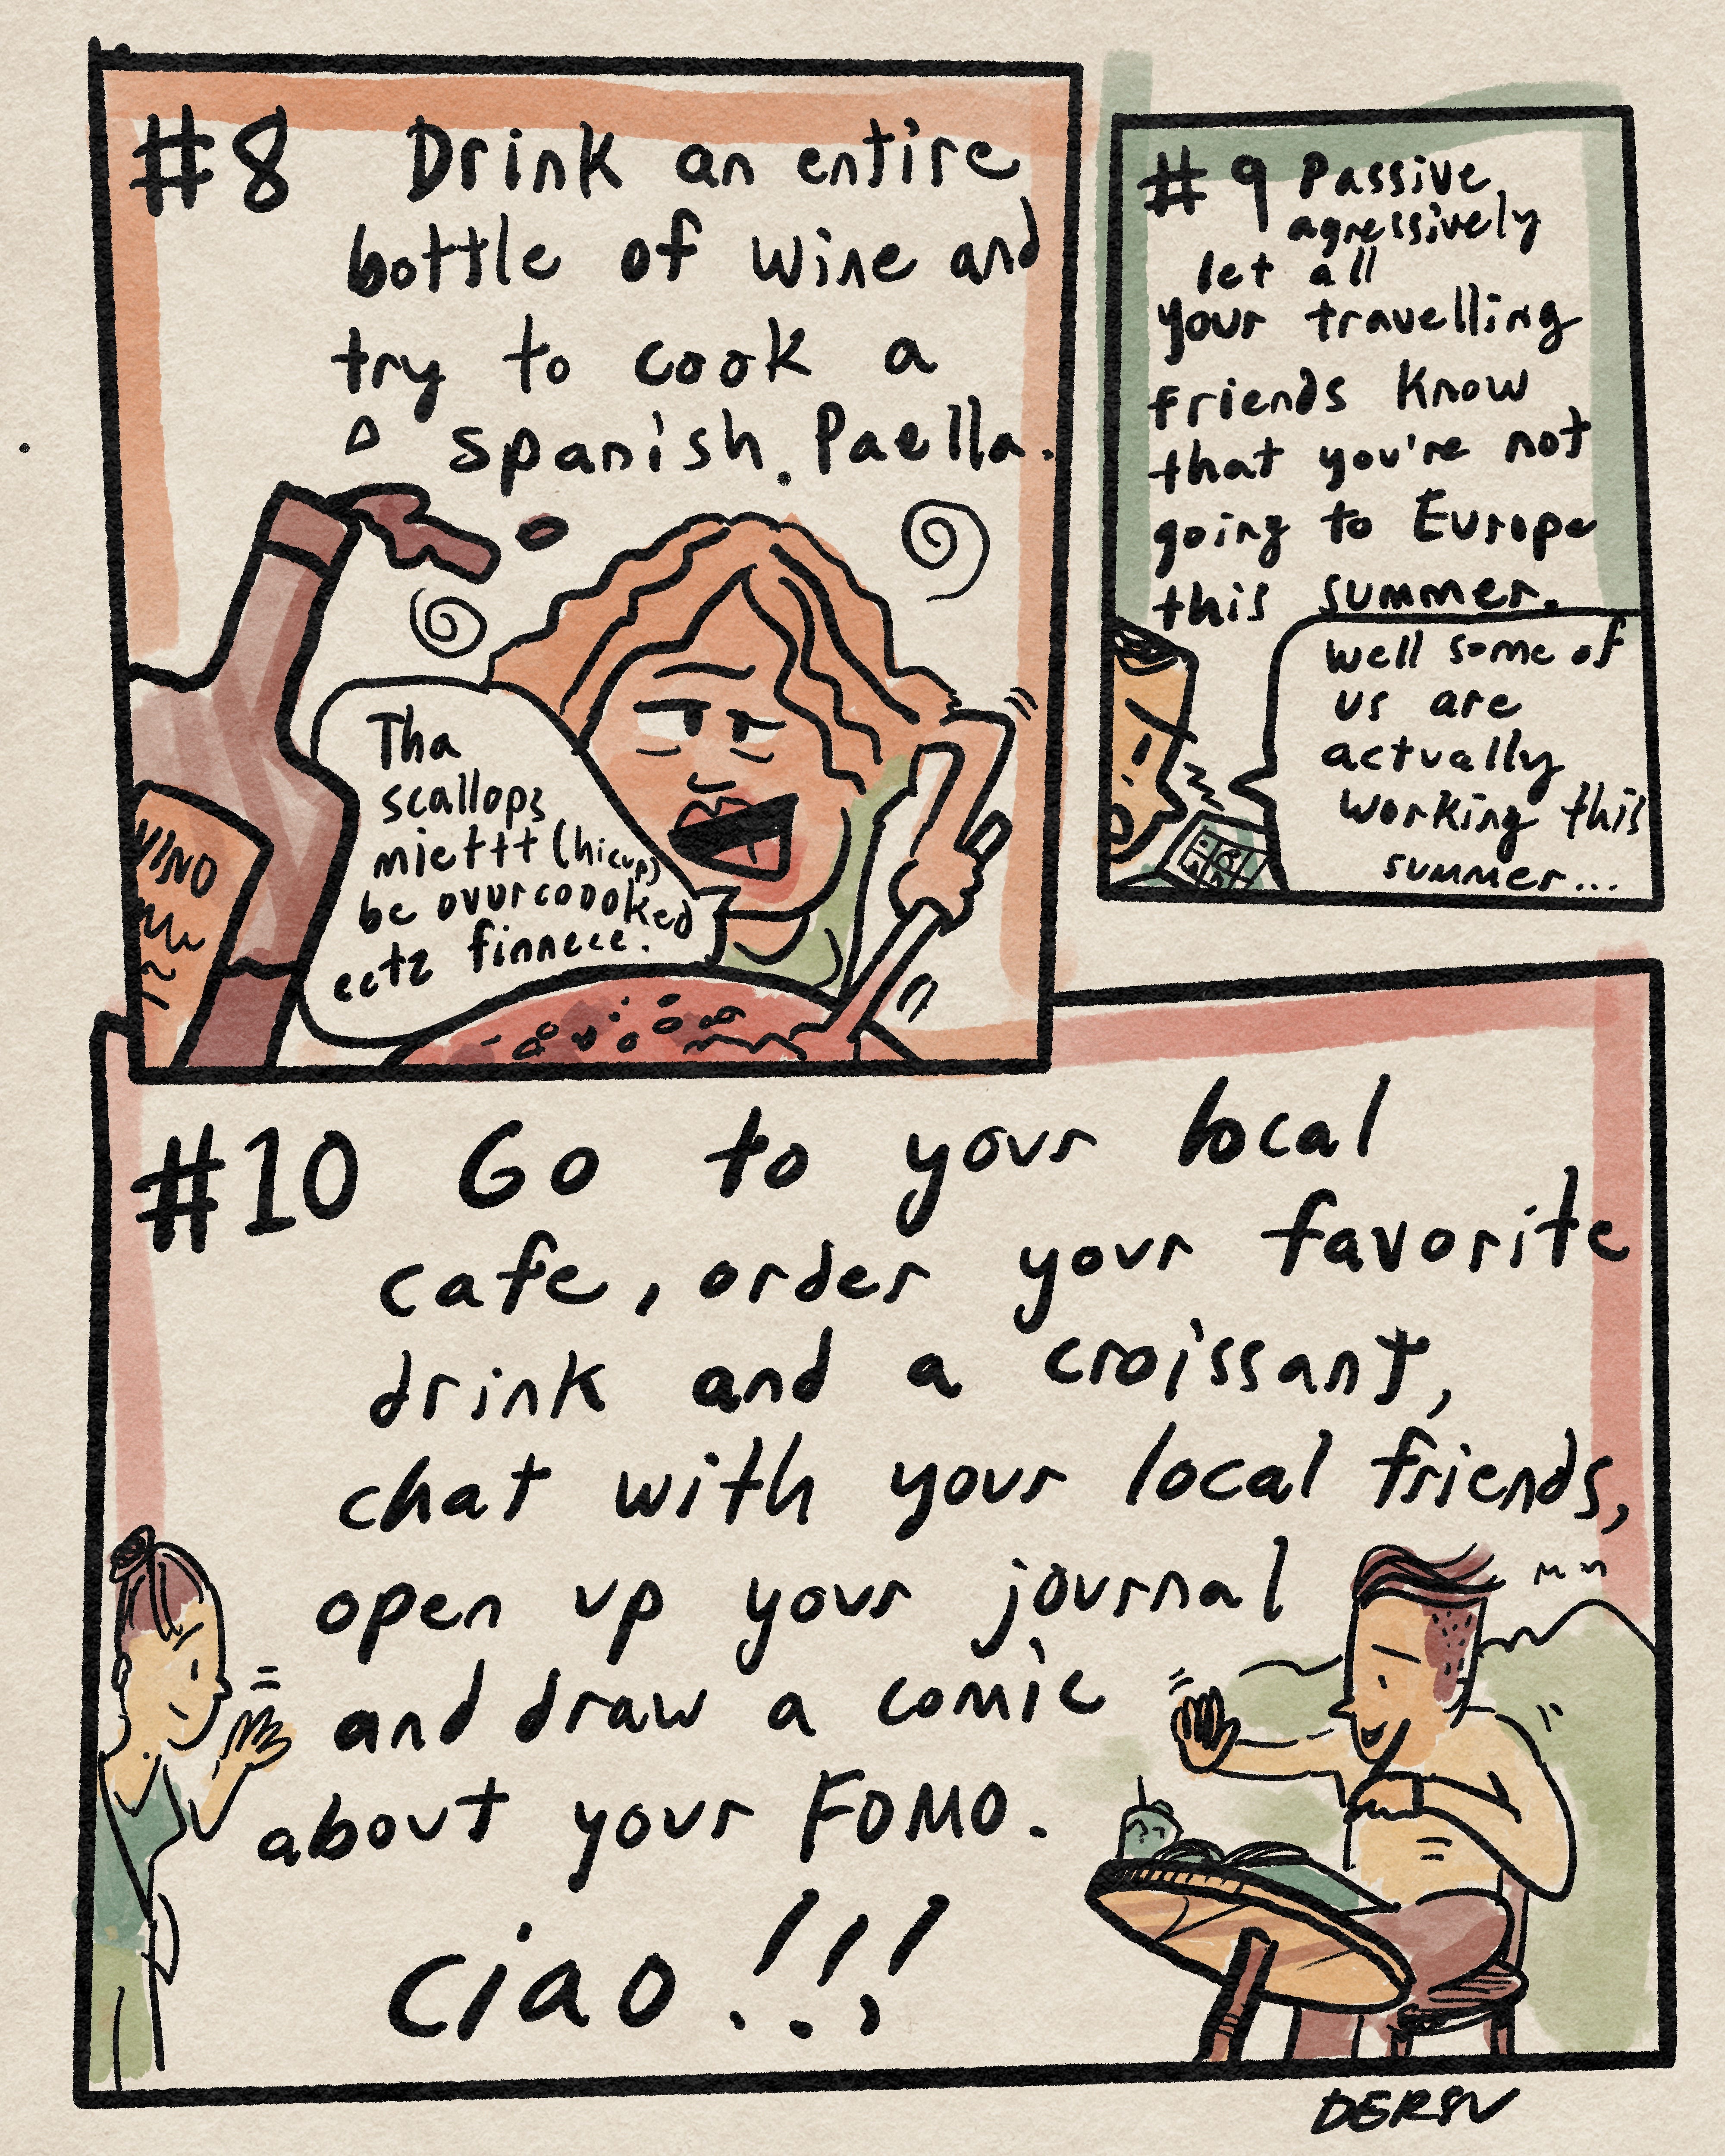 #8 Drink an entire
bottle of wine and
try to cook a
spanish Paella.
VINO
Tha
scallops
miettt (hicup)
be ovurcoooked
eetz finneee.
#9 Passive
agressively
let all
your travelling
friends know
that you're not
going to Europe
this summer.
Well some of
us are
actually
working this
summer...
#10 Go to your local
cafe, order your favorite
drink and a croissant,
chat with your local friends,
open up your journal
and draw a comic
about your FOMO.
ciao!!!
DERSU